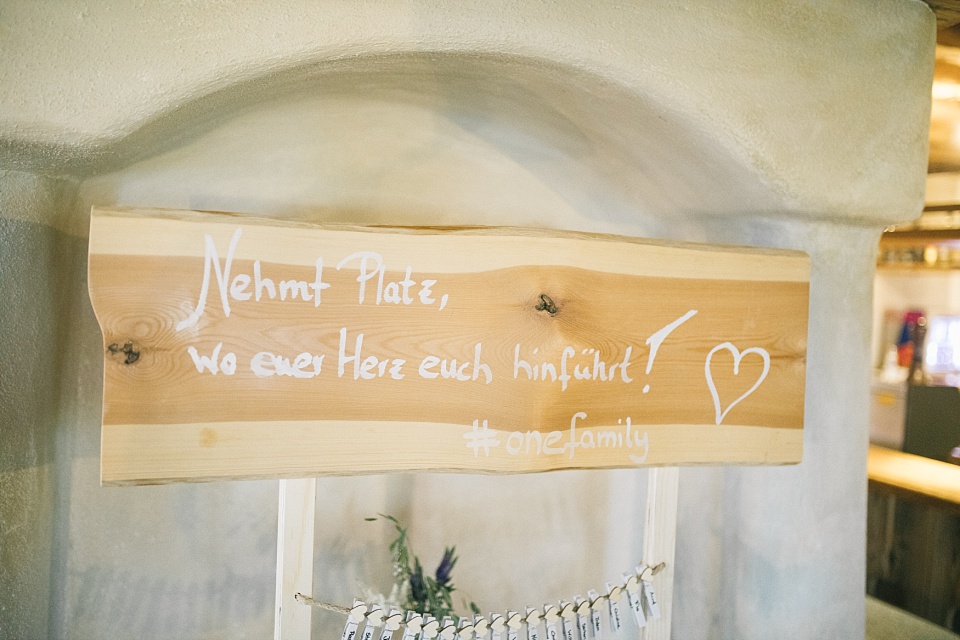 Nehmt Platz,
wo euer Herz euch hinführt!
#onefamily